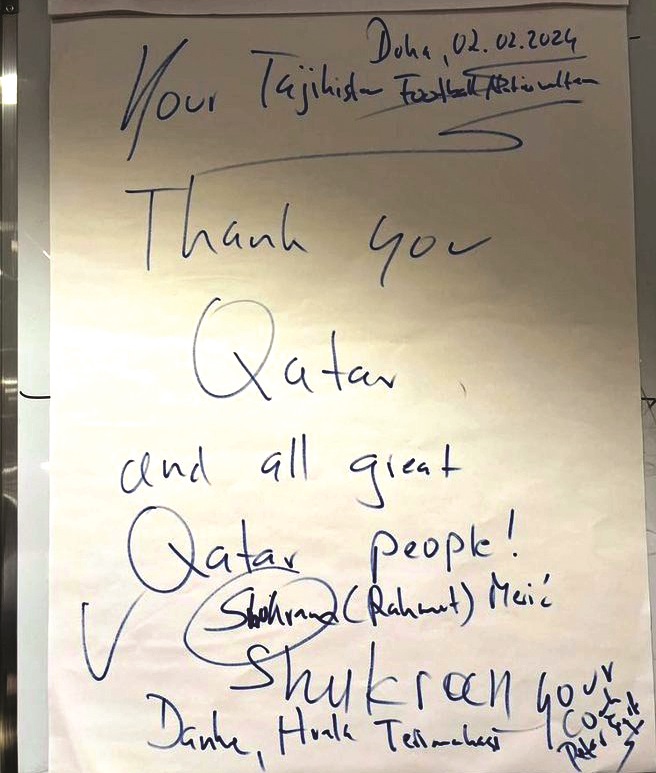 Doha, 02.02.2024
Your Tajikistan Football Nationalteam
Thank you
Qatar
and all great
Qatar people!
(Rahmat)
Shukran your
Coach
Danke, Hvala
Petar